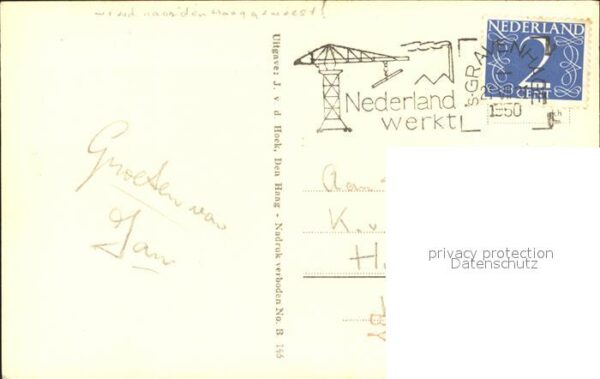 naar den Haag geweest!
Uitgave: J. v. d. Hoek, Den Haag - Nadruk verboden No. B 146
Groeten van
Jan
Nederland
werkt
'S-GRAVENHAGE
1950
NEDERLAND
2
CENT
Aan
K. v
H.
privacy protection
Datenschutz